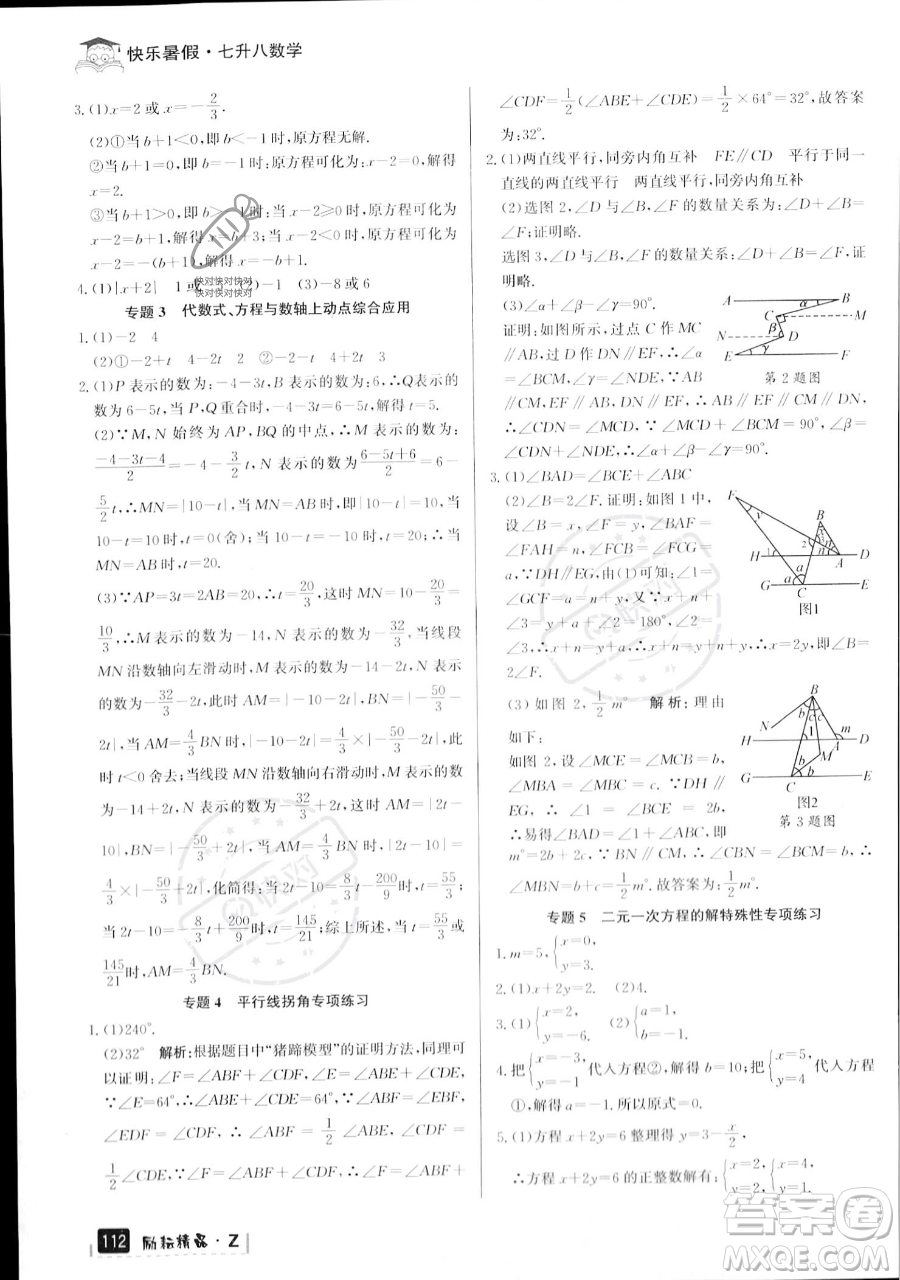 快乐暑假·七升八数学
3.(1)x=2或x=-2/3.
(2)①当b+1<0,即b<-1时,原方程无解.
②当b+1=0,即b=-1时;原方程可化为x+b=1,解得
x=2.
③当b+1>0,即b>-1时;当x-2≥0时,原方程可化为
x-2=b+1,解得x=b+3;当x-2<0时,原方程可化为
x-2=-(b+1),解得x=-b+1.
4.(1)|x+2| 1或 (2)-1 (3)-8或6
专题3 代数式、方程与数轴上动点综合应用
1.(1)-2 4
(2)①-2+t 4-2t ②2 -2+t 4-2t
2.(1)P表示的数为:-4-3t,B表示的数为:6,∴Q表示的
数为6-5t,当P、Q重合时,-4-3t=6-5t,解得t=5.
(2)∵M,N始终为AP,BQ的中点,∴M表示的数为:
(-4-3t-4)/2=-4-3/2t,N表示的数为(6-5t+6)/2=6-
5/2t,∴MN=|10-t|,当MN=AB时,即|10-t|=10,当
10-t=10时,t=0(舍);当10-t=-10时,t=20;∴当
MN=AB时,t=20.
(3)∵AP=3t=20,∴t=20/3,这时MN=|10-20/3|=
10/3,∴M表示的数为-14,N表示的数为-32/3,当线段
MN沿数轴向左滑动时,M表示的数为-14-2t,N表示
的数为-32/3-2t,此时AM=|-10-2t|,BN=|-50/3-
2t|,当AM=4/3BN时,|-10-2t|=4/3×|-50/3-2t|,此
时t<0舍去;当线段MN沿数轴向右滑动时,M表示的数
为-14+2t,N表示的数为-32/3+2t,此时AM=|2t-
10|,BN=|2t-50/3|,当AM=4/3BN时,|2t-10|=
4/3×|2t-50/3|,化简得:当2t-10=8/3t-200/9时,t=
55/3;当2t-10=-8/3t+200/9时,t=145/21;综上所述,当t=
145/21时,AM=4/3BN.
专题4 平行线拐角专项练习
1.(1)240°.
(2)32° 解析:根据题目中“猪蹄模型”的证明方法,同理可
以证明:∠F=∠ABF+∠CDF,∠E=∠ABE+∠CDE,
∵∠E=64°,∴∠ABE+∠CDE=64°,∵∠ABF=∠EBF,
∠EDF=∠CDF,∴∠ABF=1/2∠ABE,∠CDF=
1/2∠CDE,∵∠F=∠ABF+∠CDF,∴∠F=∠ABF+
∠CDF=1/2(∠ABE+∠CDE)=1/2×64°=32°,故答案
为:32°.
2.(1)两直线平行,同旁内角互补 FE∥CD 平行于同一
直线的两直线平行 两直线平行,同旁内角互补
(2)选图2,∠D、∠A与∠E的数量关系为:∠D=∠A+
∠E;证明略.
选图3,∠D、∠A与∠E的数量关系为:∠A=∠D+∠E;
证明略.
(3)∠α+∠β-∠γ=90°.
证明:如图所示,过点C作MC∥
AB,过点D作DN∥EF,∴∠α
=∠BCM,∠NDE=∠γ,∵AB
∥EF,∴AB∥CM∥DN∥EF,
∴∠CDN=∠MCD,∵∠BCM+∠MCD=90°,∴∠α+
∠CDN=∠BCM+∠CDN=∠BCM=90°,∴∠β=
∠CDN+∠γ,∴∠α+∠β-∠γ=90°.
A B C M D N β γ E F
第2题图
3.(1)∠BAD=∠BCE+∠ABC
(2)∠B=2∠F.证明:如图1中,
设∠B=x,∠F=y,∠BAF=
∠FAH=n,∠FCB=∠FCG=
a,由(1)可知:∠1=
∠GCF=y+a,又∵x+∠2+n
=180°,y+∠1+∠2=180°,∴x
=y+a,∵∠1=y+a,∴x+n=y+y+n,∴x=2y,即∠B=
2∠F.
F y B H 1 2 n A D G a C E
图1
(3)如图2,1/2m° 解析:理由
如下:
如图2,设∠MCE=∠MCB=b,
∠MBA=∠MBC=c.∵DH∥
EG,∴∠1=∠BCE=2b,
∴易得∠BAD=∠1+∠ABC,∴
m°=2b+2c,∵BN∥CM,∴∠NBC=∠BCM=b,∴
∠MBN=b+c=1/2m°.故答案为:1/2m°.
B b c c N H 1 m A D M b b G C E
图2
第3题图
专题5 二元一次方程的解特殊性专项练习
1.m=5,{x=0, y=4. {x=5, y=0.
2.(1)x+2y=6. (2)4.
3.(1){x=2, y=-6. (2){a=1, b=-1.
4.把{x=4, y=-1代入方程②,解得b=2;把{x=5, y=4代入方程
①,解得a=-1.所以原式=0.
5.(1)方程x+2y=6整理得y=3-x/2,
∴方程x+2y=6的正整数解有:{x=2, y=2. {x=4, y=1.
快对快对快对
快对快对快对
快对
112 励耘精品·Z
答案